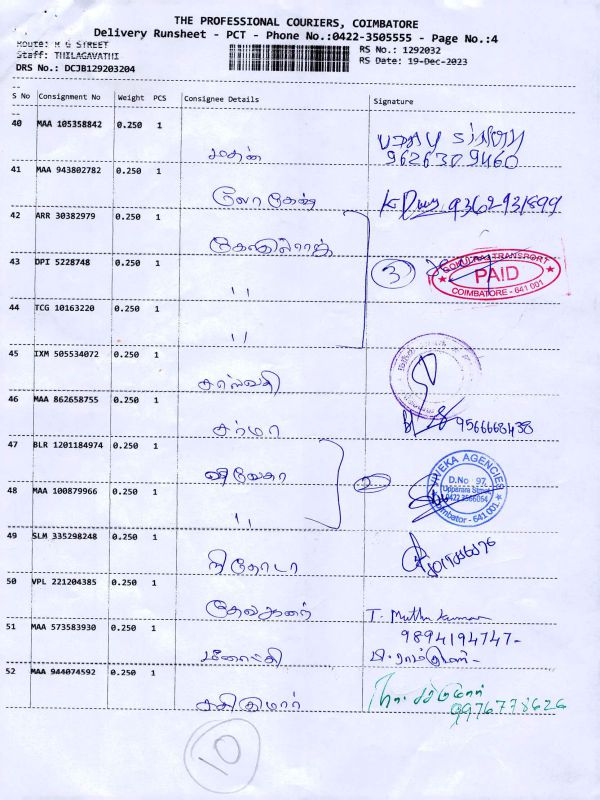 THE PROFESSIONAL COURIERS, COIMBATORE
Delivery Runsheet - PCT - Phone No.:0422-3505555 - Page No.:4
Route: M G STREET
RS No.: 1292032
Staff: THILAGAVATHI
RS Date: 19-Dec-2023
DRS No.: DCJB129203204
S No Consignment No Weight PCS Consignee Details Signature
40 MAA 105358842 0.250 1
மதன்
9626309460
41 MAA 943802782 0.250 1
லோகேஷ் 9362931899
42 ARR 30382979 0.250 1
43 DPI 5228748 0.250 1
" 3 GOKULAM TRANSPORT
PAID
COIMBATORE - 641 001
44 TCG 10163220 0.250 1
"
45 IXM 505534072 0.250 1
46 MAA 862658755 0.250 1
சர்மா 9566668438
47 BLR 1201184974 0.250 1
விவேகா 2 VIVEKA AGENCIES
D.No 97,
Upparara Street
0422 3566054
Coimbator - 641 001
48 MAA 100879966 0.250 1
"
49 SLM 335298248 0.250 1
50 VPL 221204385 0.250 1
T. Muthu Kumar
9894194747
51 MAA 573583930 0.250 1
52 MAA 944074592 0.250 1
சசிகுமார்
9976778626
10